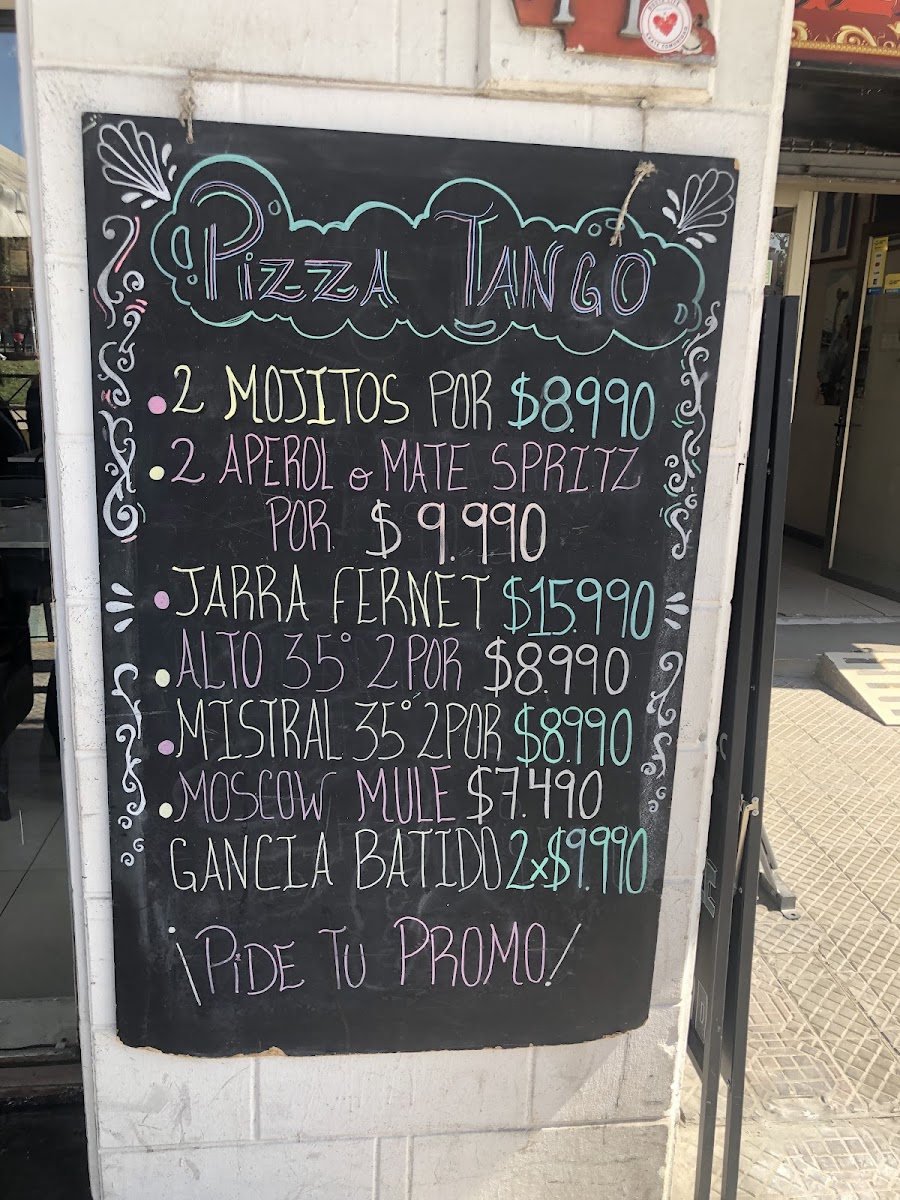 Pizza Tango
• 2 MOJITOS POR $8.990
• 2 APEROL o MATE SPRITZ
POR $9.990
• JARRA FERNET $15.990
• ALTO 35° 2 POR $8.990
• MISTRAL 35° 2 POR $8.990
• MOSCOW MULE $7.490
GANCIA BATIDO 2x$9.990
¡PiDE TU PROMO!